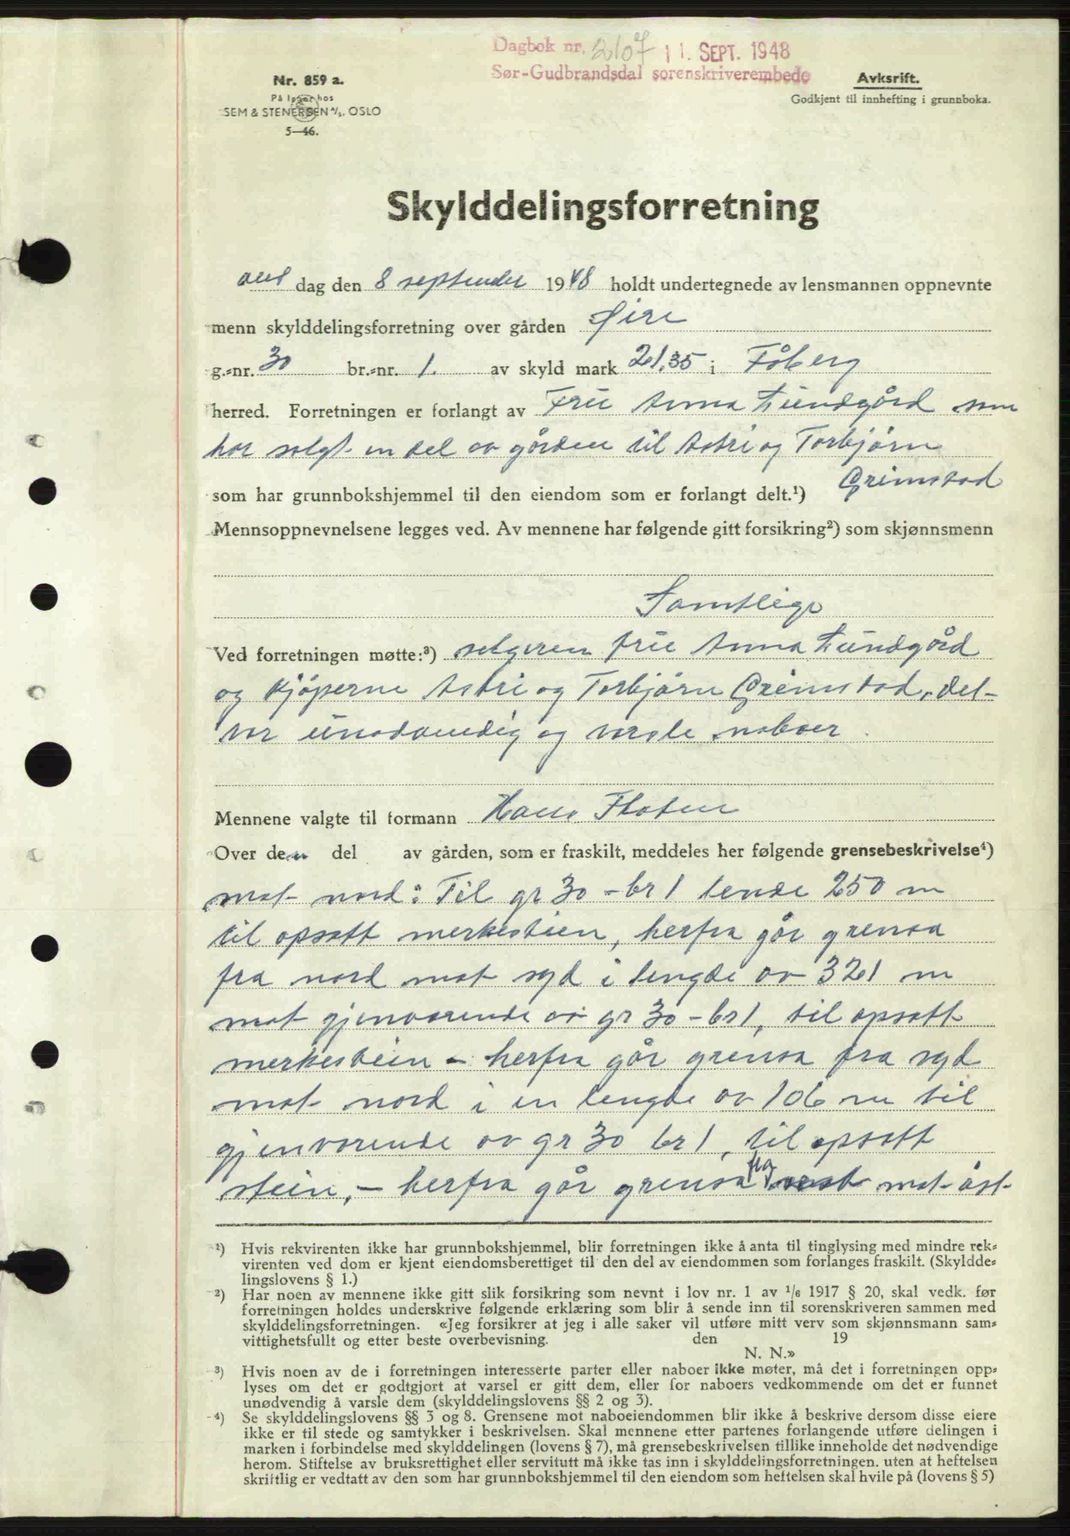 Dagbok nr. 2107 11. SEPT. 1948
Sør-Gudbrandsdal sorenskriverembede
Nr. 859 a.
På lager hos
SEM & STENERSEN A/S. OSLO
5—46.
Avksrift.
Godkjent til innhefting i grunnboka.
Skylddelingsforretning
dag den 8 september 1948 holdt undertegnede av lensmannen oppnevnte
menn skylddelingsforretning over gården Øire
g.-nr. 30 br.-nr. 1. av skyld mark 21,35 i Fåberg
herred. Forretningen er forlangt av Fru Anna Lundgård som
har solgt en del av gården til Astri og Torbjørn
Grimstad
som har grunnbokshjemmel til den eiendom som er forlangt delt.¹)
Mennsoppnevnelsene legges ved. Av mennene har følgende gitt forsikring²) som skjønnsmenn
Samtlige
Ved forretningen møtte:³) selgeren fru Anna Lundgård
og kjøperne Astri og Torbjørn Grimstad, det
var unødvendig og varsle naboer.
Mennene valgte til formann Hans Floten
Over den del av gården, som er fraskilt, meddeles her følgende grensebeskrivelse⁴)
mot nord: Til gr 30 - br 1 lende 250 m
til opsatt merkestein, herfra går grensa
fra nord mot syd i lengde av 321 m
mot gjenværende av gr 30 - br 1, til opsatt
merkestein - herfra går grensa fra syd
mot nord i en lengde av 106 m til
gjenværende av gr 30 br 1, til opsatt
stein, - herfra går grensa mot øst
¹) Hvis rekvirenten ikke har grunnbokshjemmel, blir forretningen ikke å anta til tinglysing med mindre rek-
virenten ved dom er kjent eiendomsberettiget til den del av eiendommen som forlanges fraskilt. (Skyldde-
lingslovens § 1.)
²) Har noen av mennene ikke gitt slik forsikring som nevnt i lov nr. 1 av 1/6 1917 § 20, skal vedk. før
forretningen holdes underskrive følgende erklæring som blir å sende inn til sorenskriveren sammen med
skylddelingsforretningen. «Jeg forsikrer at jeg i alle saker vil utføre mitt verv som skjønnsmann sam-
vittighetsfullt og etter beste overbevisning. den 19
N. N.»
³) Hvis noen av de i forretningen interesserte parter eller naboer ikke møter, må det i forretningen opp-
lyses om det er godtgjort at varsel er gitt dem, eller for naboers vedkommende om det er funnet
unødvendig å varsle dem (skylddelingslovens §§ 2 og 3).
⁴) Se skylddelingslovens §§ 3 og 8. Grensene mot naboeiendommen blir ikke å beskrive dersom disse eiere
ikke er til stede og samtykker i beskrivelsen. Skal mennene etter partenes forlangende utføre delingen i
marken i forbindelse med skylddelingen (lovens § 7), må grensebeskrivelsen tillike inneholde det nødvendige
herom. Stiftelse av bruksrettighet eller servitutt må ikke tas inn i skylddelingsforretningen, uten at heftelsen
skriftlig er vedtatt av den som har grunnbokshjemmel til den eiendom som heftelsen skal hvile på (lovens § 5)